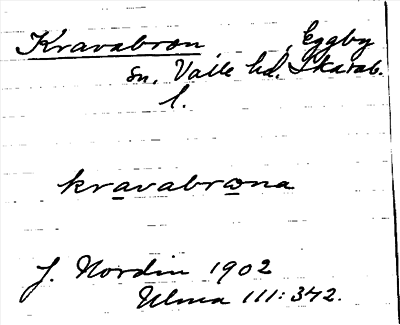 Kravabræn, Eggby
sn, Valle hd. Skarab.
l.
kravabræna
J. Nordin 1902
Ulma 111:342.